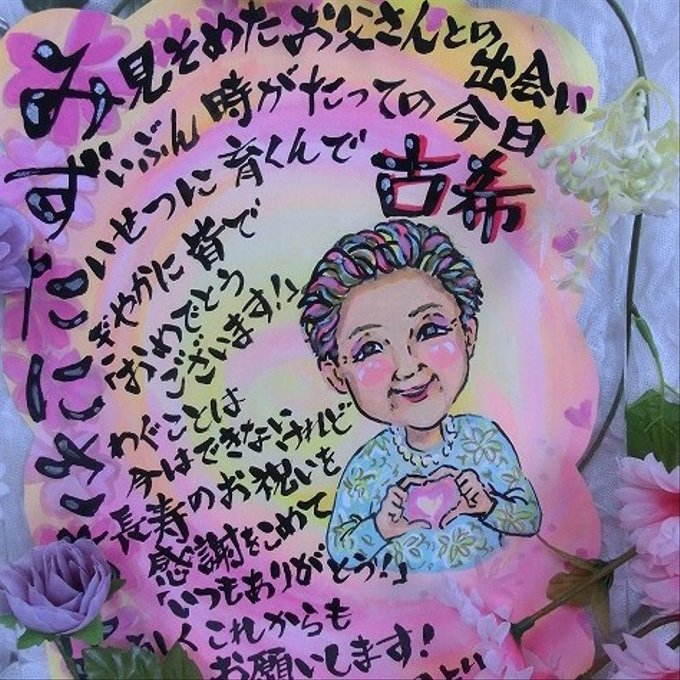 み見そめたお父さんとの出会い
ずいぶん時がたっての今日
たいせつに育くんで古希
にぎやかに皆で
「おめでとう
ございます!」
さわぐことは
今はできないけれど
長寿のお祝いを
感謝をこめて
「いつもありがとう!」
しくこれからも
お願いします!
より